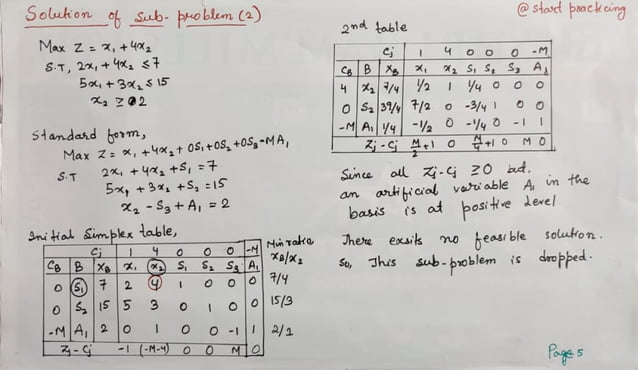 Solution of Sub-problem (2)
Max Z = x₁ + 4x₂
S.T, 2x₁ + 4x₂ ≤ 7
5x₁ + 3x₂ ≤ 15
x₂ ≥ 2
Standard form,
Max Z = x₁ + 4x₂ + 0S₁ + 0S₂ + 0S₃ - MA₁
S.T 2x₁ + 4x₂ + S₁ = 7
5x₁ + 3x₂ + S₂ = 15
x₂ - S₃ + A₁ = 2
Initial Simplex table,
Cj 1 4 0 0 0 -M Min ratio
CB B XB x₁ x₂ S₁ S₂ S₃ A₁ XB/x₂
0 S₁ 7 2 4 1 0 0 0 7/4
0 S₂ 15 5 3 0 1 0 0 15/3
-M A₁ 2 0 1 0 0 -1 1 2/1
Zj - Cj -1 (-M-4) 0 0 M 0
@ start practicing
2nd table
Cj 1 4 0 0 0 -M
CB B XB x₁ x₂ S₁ S₂ S₃ A₁
4 x₂ 7/4 1/2 1 1/4 0 0 0
0 S₂ 39/4 7/2 0 -3/4 1 0 0
-M A₁ 1/4 -1/2 0 -1/4 0 -1 1
Zj - Cj M/2+1 0 M/4+1 0 M 0
Since all Zj-Cj ≥0 but,
an artificial variable A₁ in the
basis is at positive level
There exsits no feasible solution.
So, This sub-problem is dropped.
Page 5